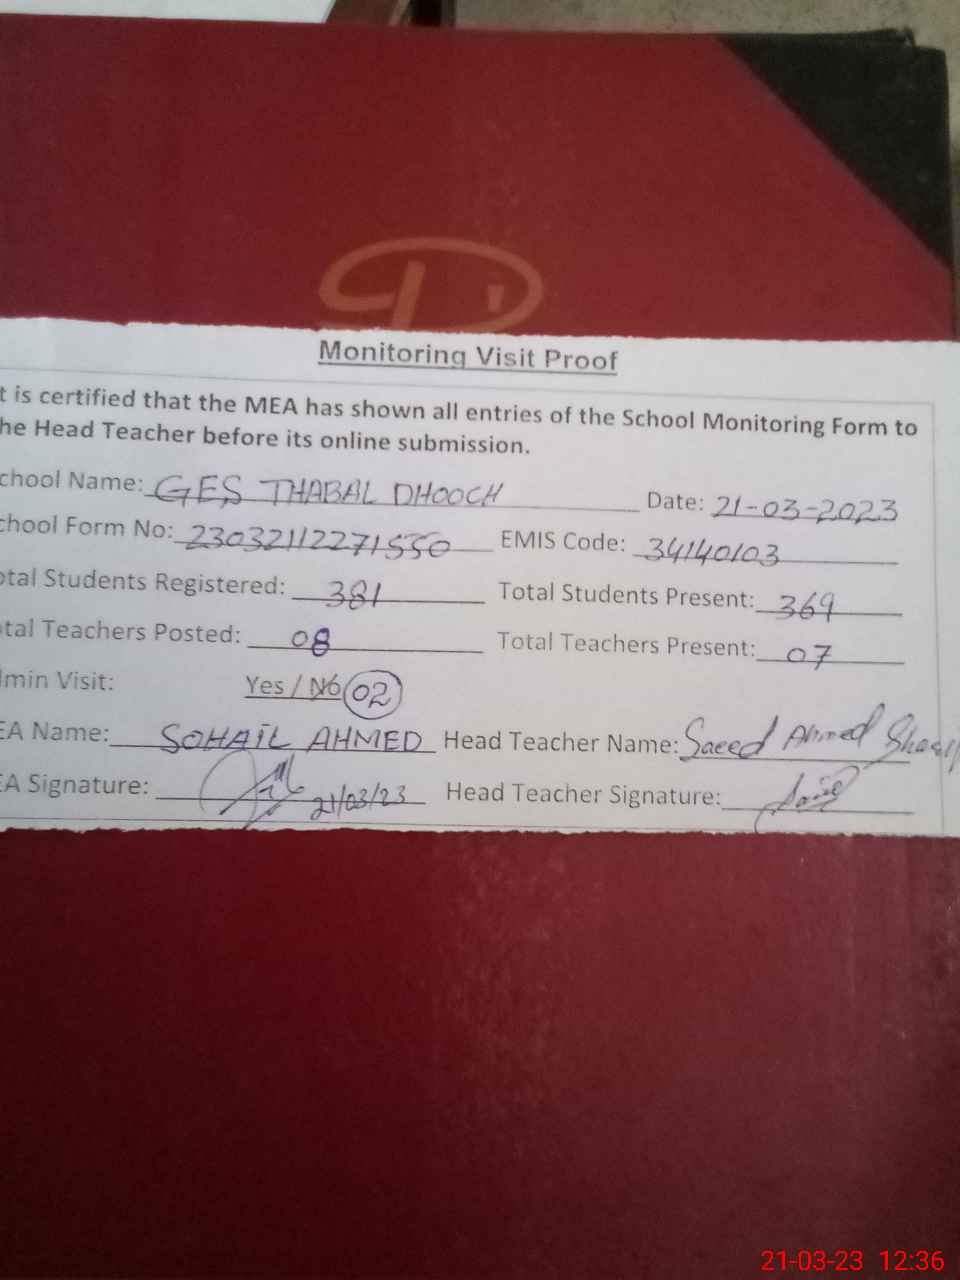 Monitoring Visit Proof
t is certified that the MEA has shown all entries of the School Monitoring Form to
he Head Teacher before its online submission.
chool Name: GES THABAL DHOOCH Date: 21-03-2023
chool Form No: 23032112271550 EMIS Code: 34140103
otal Students Registered: 381 Total Students Present: 369
tal Teachers Posted: 08 Total Teachers Present: 07
min Visit: Yes / No 02
EA Name: SOHAIL AHMED Head Teacher Name: Saeed Ahmed
EA Signature: 21/03/23 Head Teacher Signature:
21-03-23 12:36